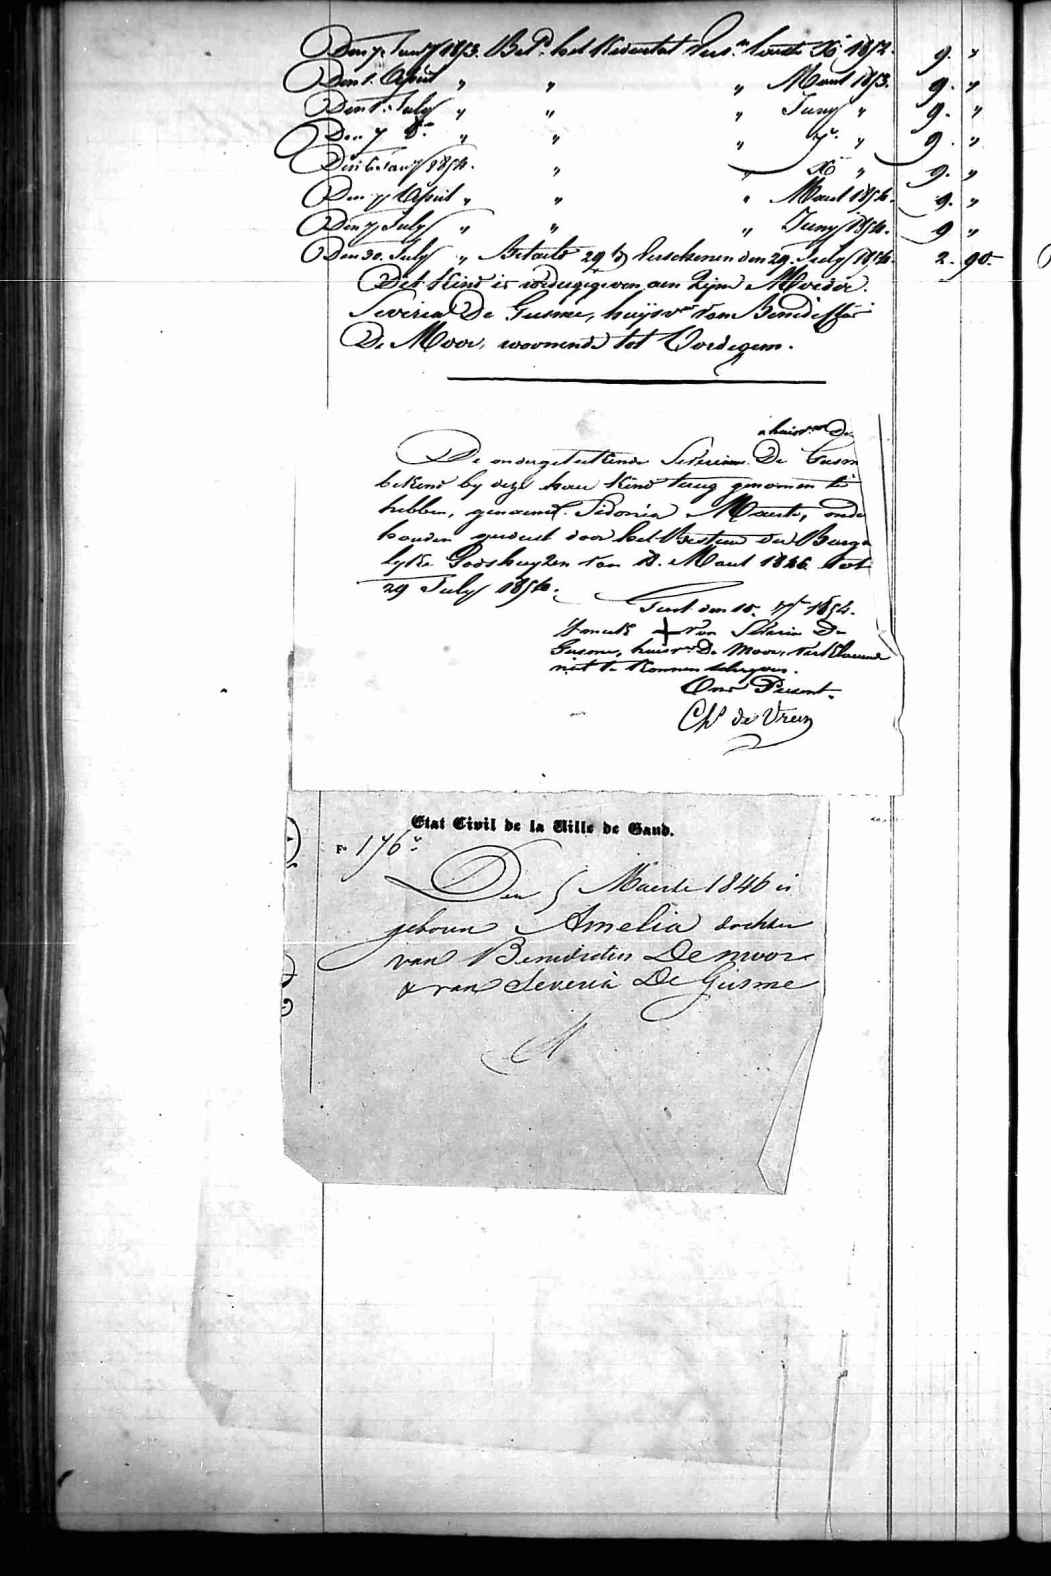 Den 7. January 1853. Bet.d het Kwartal Vers.en Xb. 1852. 9. "
Den 1. April " " " Maart 1853. 9. "
Den 1. July " " " Juny " 9. "
Den 7 8.re " " " 7r. " 9. "
Den 6. Jany 1854. " " Xb " 9. "
Den 7 April " " " Maart 1854. 9. "
Den 7 July " " " Juny 1854. 9 "
Den 30. July " Betaelt 29 d. Verschenen den 29. July 1854. 2. 90.
Dit Kind is wedergegeven aen Zijne Moeder.
Severia De Gusme, huijsv.w van Benedictus
De Moor, woonende tot Oordegem.
huisv.w De
De ondergeteekende Severina De Gusm
bekend by deze haer Kind terug genomen te
hebben, genaemd Sidonia Maerte, onde
houden geweest door het Bestuer der Burge
lyke Godshuyzen van Maart 1846 tot
29 July 1854.
Gent den 15. 7r 1854.
't merk + van Severia De
Gusme, huisv.w De Moor, verklarende
niet te konnen schryven.
Ons Present.
Ch.s de Vreen
Etat Civil de la Ville de Gand.
F° 176 v°
Den 5 Maerte 1846 is
geboren Amelia dochter
van Benedictus Demoor
& van Severia De Gusme